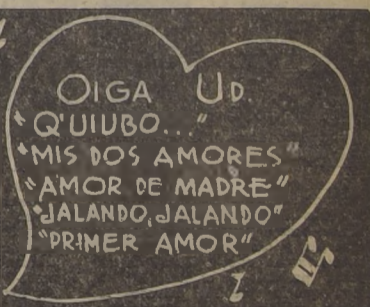 OIGA UD.
"Q'UIUBO..."
"MIS DOS AMORES"
"AMOR DE MADRE"
"JALANDO, JALANDO"
"PRIMER AMOR"